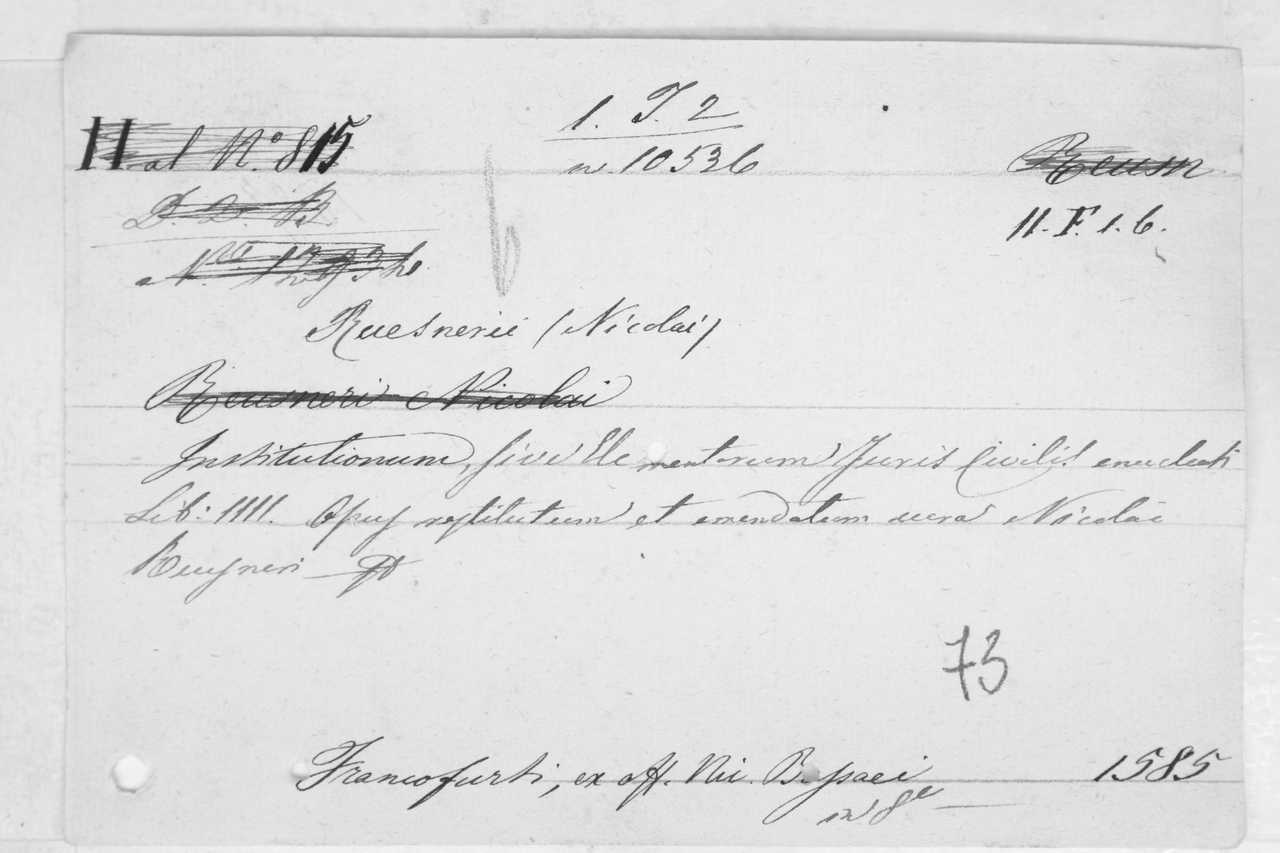 1. T. 2
II al N.º 815
n. 10536
Reusn
D. D. R.
II. F. 1. 6.
Ruesnerii (Nicolai)
Reusneri Nicolai
Institutionum, sive Elementorum Juris Civilis enucleati
Lib: IIII. Opus restitutum et emendatum cura Nicolai
Reusneri
73
Francofurti, ex off. Nic. Bassaei 1585
in 8º